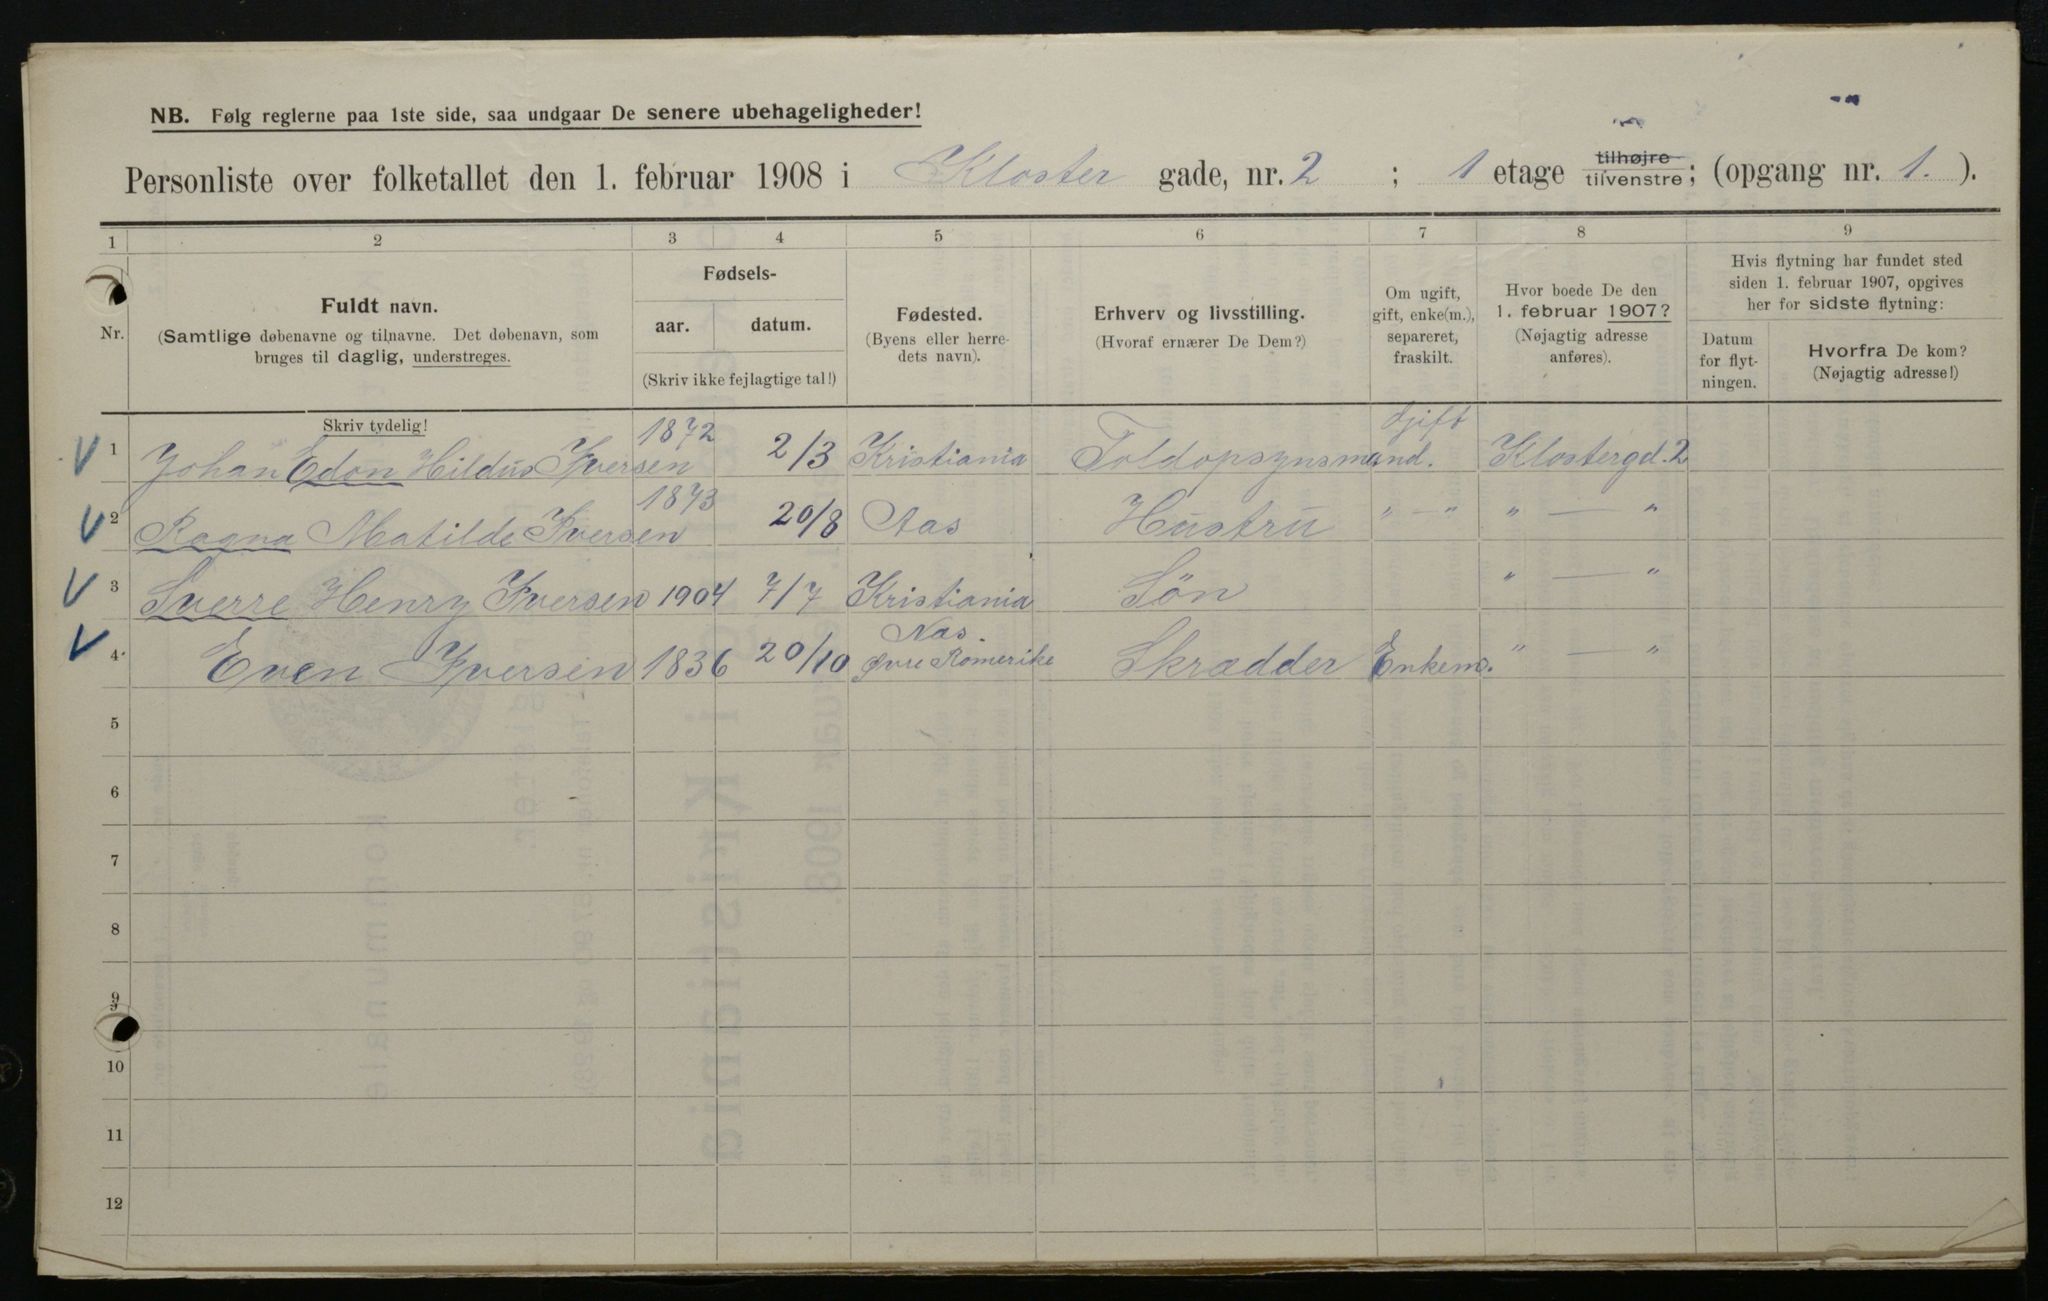 NB. Følg reglerne paa 1ste side, saa undgaar De senere ubehageligheder!
Personliste over folketallet den 1. februar 1908 i Kloster gade, nr. 2 ; 1 etage tilhøjre tilvenstre; (opgang nr. 1. ).
1 2 3 4 5 6 7 8 9
Nr.
Fuldt navn.
(Samtlige døbenavne og tilnavne. Det døbenavn, som
bruges til daglig, understreges.
Skriv tydelig!
Fødsels-
aar. datum.
(Skriv ikke fejlagtige tal!)
Fødested.
(Byens eller herre-
dets navn).
Erhverv og livsstilling.
(Hvoraf ernærer De Dem?)
Om ugift,
gift, enke(m.),
separeret,
fraskilt.
Hvor boede De den
1. februar 1907?
(Nøjagtig adresse
anføres).
Hvis flytning har fundet sted
siden 1. februar 1907, opgives
her for sidste flytning:
Datum
for flyt-
ningen.
Hvorfra De kom?
(Nøjagtig adresse!)
1 Johan Edon Hildus Iversen 1872 2/3 Kristiania Toldopsynsmand. Gift Klostergd. 2
2 Ragna Matilde Iversen 1873 20/8 Aas Hustru " — " " — "
3 Sverre Henry Iversen 1904 7/7 Kristiania Søn " — "
4 Even Iversen 1836 20/10 Nas. Øvre Romerike Skrædder Enkem. " — "
5
6
7
8
9
10
11
12